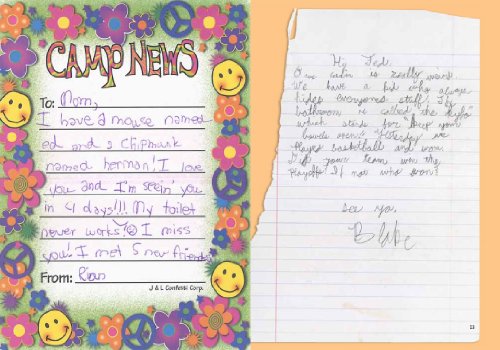 CAMP NEWS
To: Mom,
I have a mouse named
ed and a chipmunk
named herman! I love
you and I'm seein' you
in 4 days!!! My toilet
never works! I miss
you! I met 5 new friends
From: Rian
J & L Confetti Corp.
Hi Ted,
Our cabin is really weird
We have a kid who always
hides everyones stuff. The
bathroom is called the
which stands for "
Yesterday we
played basketball and won.
Did your team win the
playoffs? If not who won?
see ya,
Blake
33